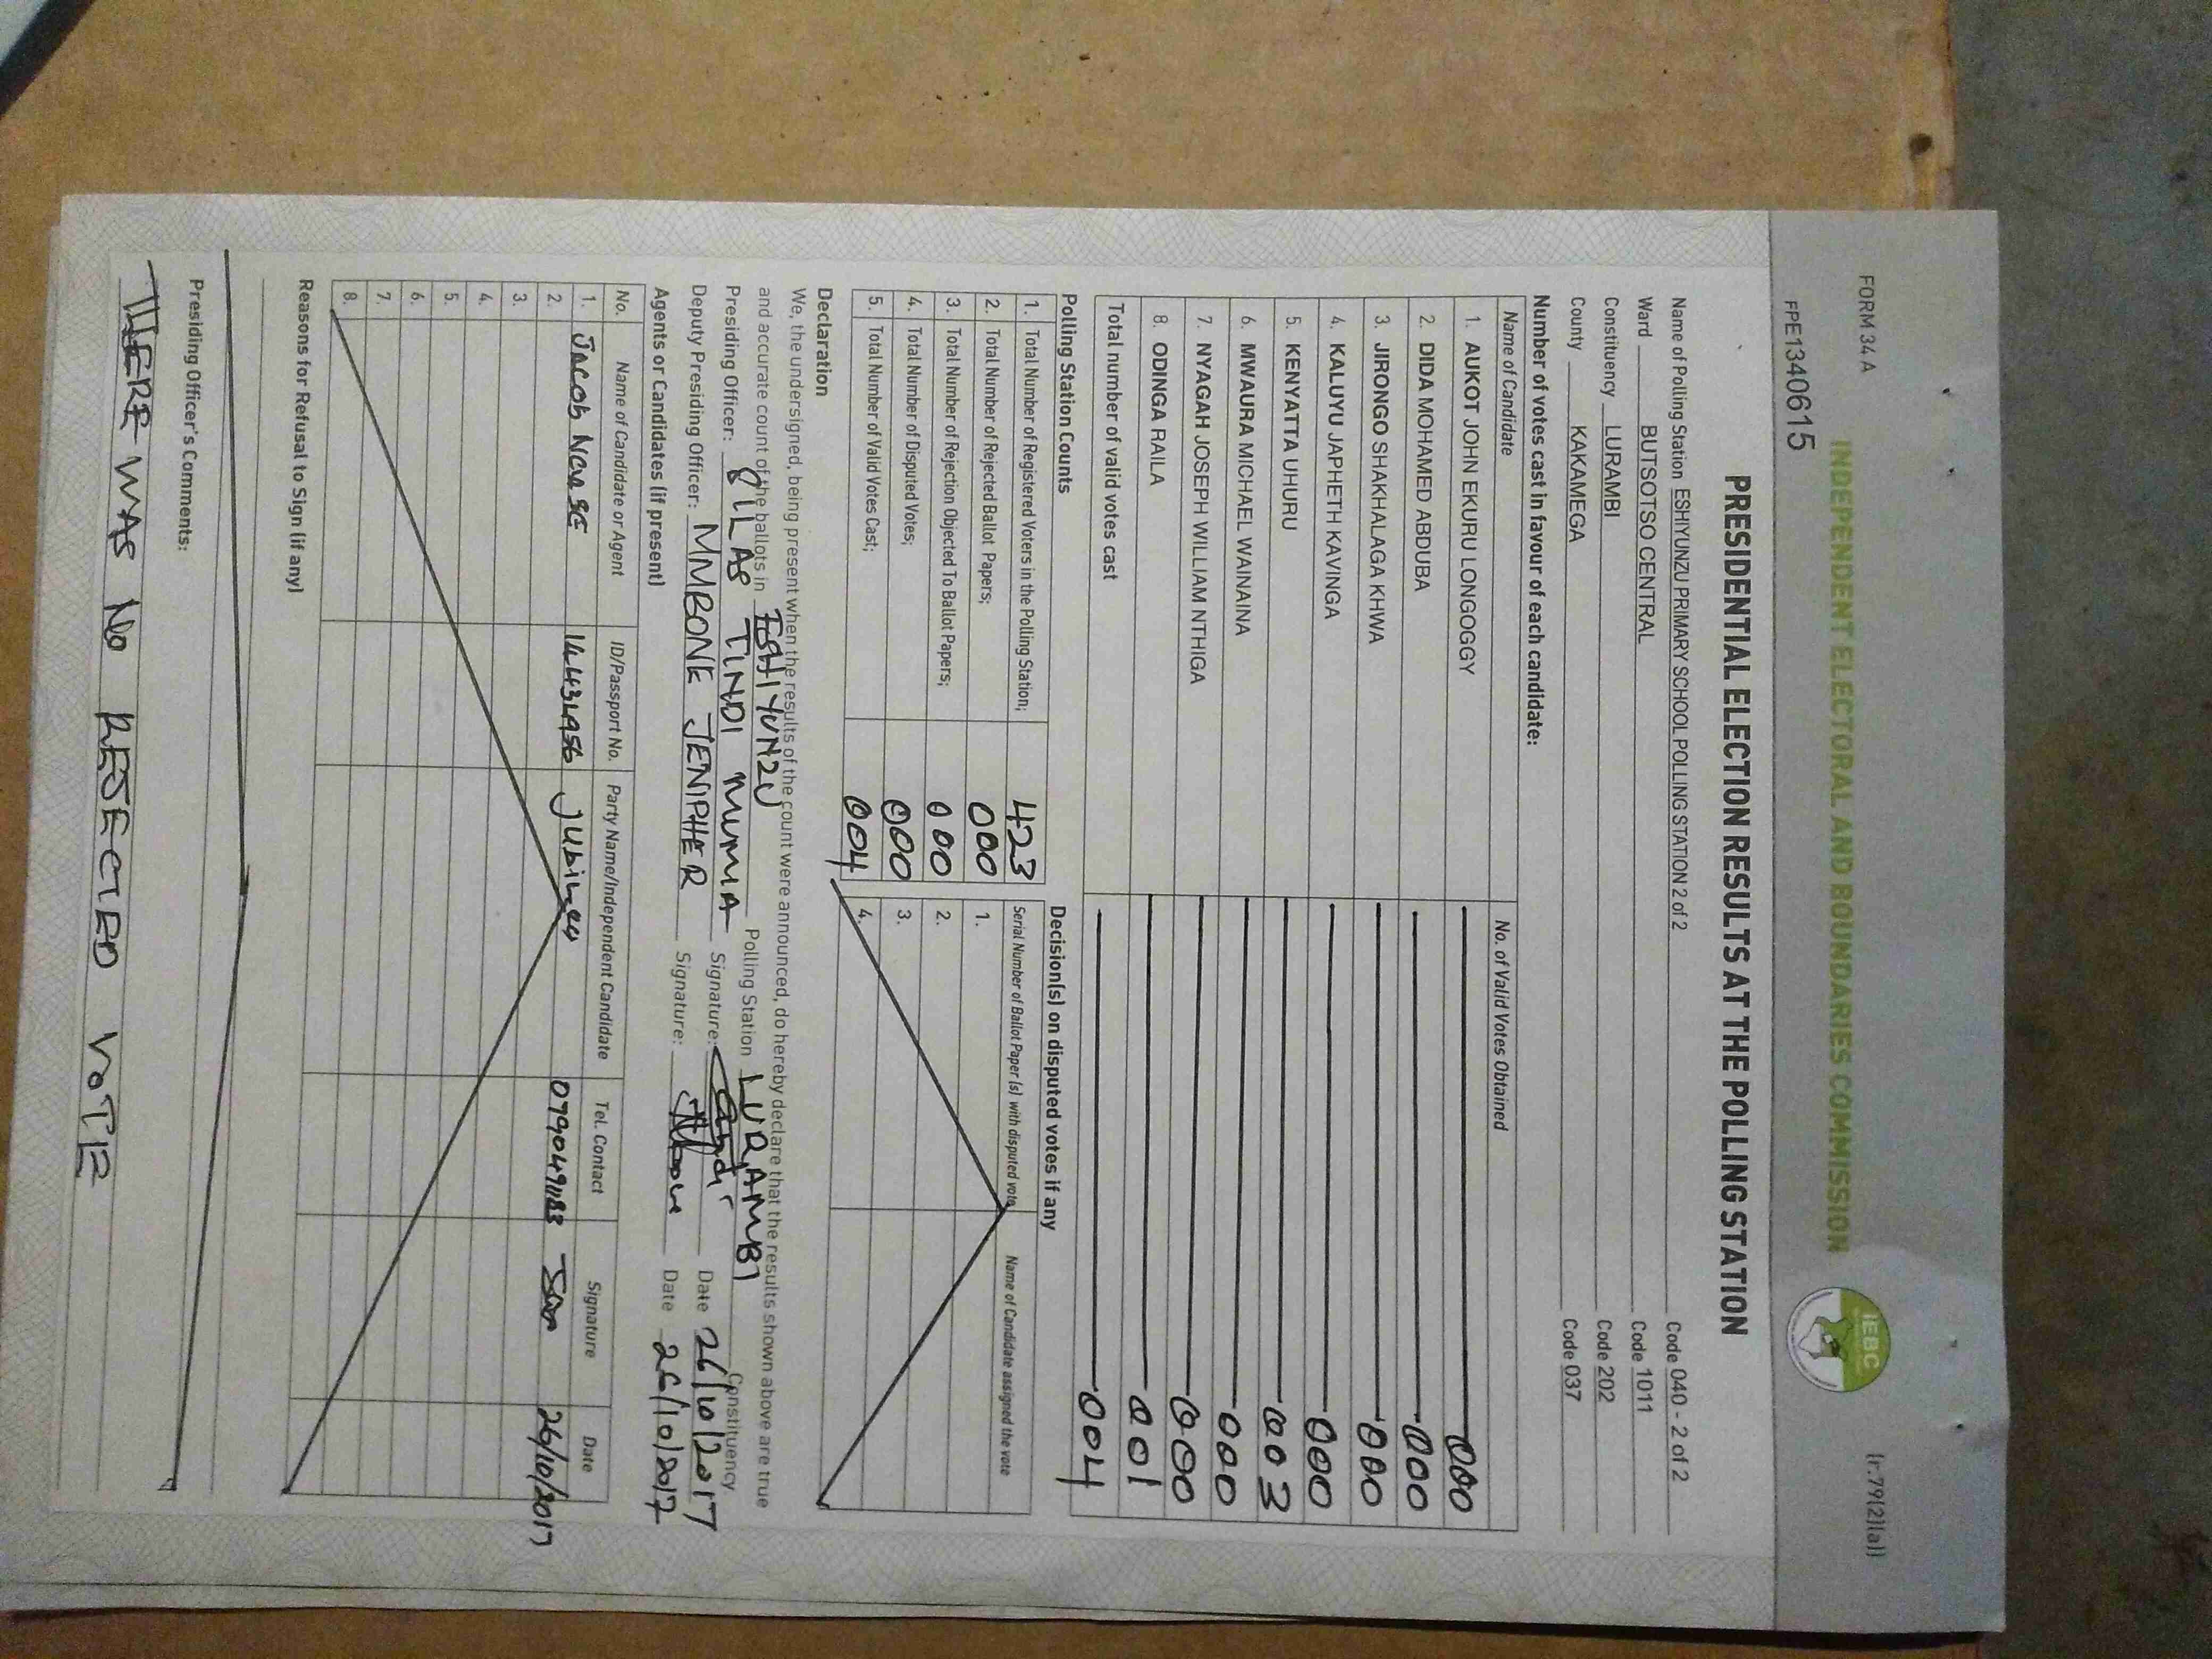 FORM 34 A
(r.79(2)(a))
INDEPENDENT ELECTORAL AND BOUNDARIES COMMISSION
IEBC
FPE1340615
PRESIDENTIAL ELECTION RESULTS AT THE POLLING STATION
Name of Polling Station ESHIYUNZU PRIMARY SCHOOL POLLING STATION 2 of 2 Code 040 - 2 of 2
Ward BUTSOTSO CENTRAL Code 1011
Constituency LURAMBI Code 202
County KAKAMEGA Code 037
Number of votes cast in favour of each candidate:
Name of Candidate No. of Valid Votes Obtained
1. AUKOT JOHN EKURU LONGOGGY 000
2. DIDA MOHAMED ABDUBA 000
3. JIRONGO SHAKHALAGA KHWA 000
4. KALUYU JAPHETH KAVINGA 000
5. KENYATTA UHURU 003
6. MWAURA MICHAEL WAINAINA 000
7. NYAGAH JOSEPH WILLIAM NTHIGA 000
8. ODINGA RAILA 001
Total number of valid votes cast 004
Polling Station Counts
1. Total Number of Registered Voters in the Polling Station; 423
2. Total Number of Rejected Ballot Papers; 000
3. Total Number of Rejection Objected To Ballot Papers; 000
4. Total Number of Disputed Votes; 000
5. Total Number of Valid Votes Cast; 004
Decision(s) on disputed votes if any
Serial Number of Ballot Paper (s) with disputed vote Name of Candidate assigned the vote
1.
2.
3.
4.
Declaration
We, the undersigned, being present when the results of the count were announced, do hereby declare that the results shown above are true
and accurate count of the ballots in ESHIYUNZU Polling Station LURAMBI Constituency
Presiding Officer: SILAS TINDI MUMMA Signature: Date 26/10/2017
Deputy Presiding Officer: MMBONE JENIPHER Signature: Date 26/10/2017
Agents or Candidates (if present)
No. Name of Candidate or Agent ID/Passport No. Party Name/Independent Candidate Tel. Contact Signature Date
1. Jacob Jubilee 26/10/2017
2.
3.
4.
5.
6.
7.
8.
Reasons for Refusal to Sign (if any)
Presiding Officer's Comments:
THERE WAS No REJECTED VOTE